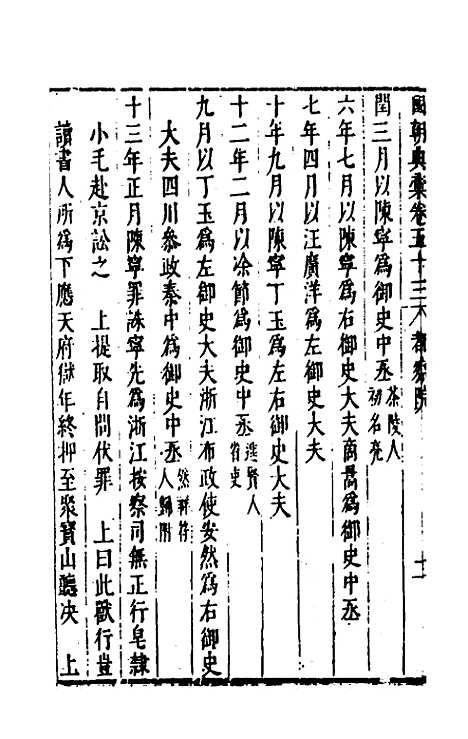 國朝典彙卷五十三 都察院 十一
閏三月以陳寧爲御史中丞茶陵人初名亮
六年七月以陳寧爲右御史大夫商暠爲御史中丞
七年四月以汪廣洋爲左御史大夫
十年九月以陳寧丁玉爲左右御史大夫
十二年二月以凃節爲御史中丞進賢人省吏
九月以丁玉爲左御史大夫浙江布政使安然爲右御史
大夫四川參政秦中爲御史中丞然祥符人歸附
十三年正月陳寧罪誅寧先爲浙江按察司無正行皂隷
小毛赴京訟之 上提取自問伏罪 上曰此獸行豈
讀書人所爲下應天府獄年終押至聚寳山聽决 上